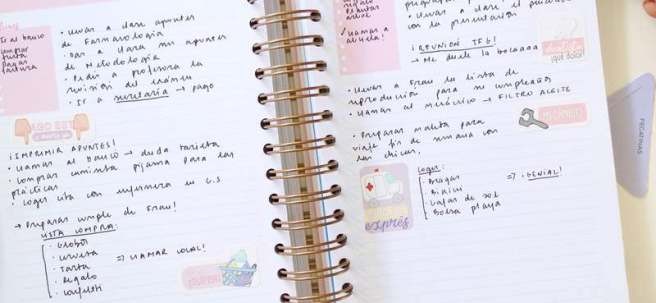 Ir al banco
comprar
tarta
pagar
factura
· Llevar a clase apuntes
de Farmacología
· Dar a Clara mis apuntes
de Metodología
· Pedir a profesora la
revisión del examen
· Ir a secretaría → pago
¡IMPRIMIR APUNTES!
· Llamar al banco → duda tarjeta
· Comprar camiseta pijama para las
prácticas
· Coger cita con enfermera en C.S
→ Preparar cumple de Fran!
LISTA COMPRA:
· Globos
· Tarta
· Regalo
· Confetti
⇒ LLAMAR LOCAL!
¡Llamar a
abuela!
· Llevar a clase el
con la presentación
¡REUNIÓN TFG!
→ Me duele la
¡qué dolor!
· Llevar a Fran la lista de
reproducción para su cumpleaños
· Llamar al mecánico → FILTRO ACEITE
MECÁNICO
· Preparar maleta para
viaje fin de semana con
las chicas.
Coger:
· Bragas
· Bikini
· Gafas de sol
· Bolsa playa
⇒ ¡GENIAL!
exprés